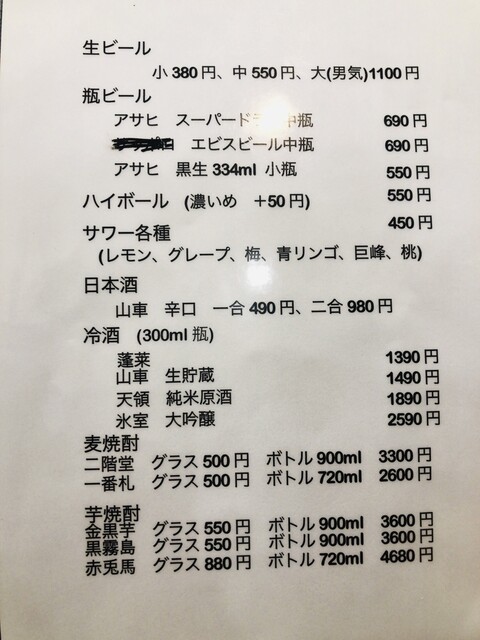 生ビール
小 380 円、中 550 円、大(男気)1100 円
瓶ビール
アサヒ スーパードライ中瓶 690 円
エビスビール中瓶 690 円
アサヒ 黒生 334ml 小瓶 550 円
ハイボール (濃いめ +50 円) 550 円
サワー各種 450 円
(レモン、グレープ、梅、青リンゴ、巨峰、桃)
日本酒
山車 辛口 一合 490 円、二合 980 円
冷酒 (300ml 瓶)
蓬莱 1390 円
山車 生貯蔵 1490 円
天領 純米原酒 1890 円
氷室 大吟醸 2590 円
麦焼酎
二階堂 グラス 500 円 ボトル 900ml 3300 円
一番札 グラス 500 円 ボトル 720ml 2600 円
芋焼酎
金黒芋 グラス 550 円 ボトル 900ml 3600 円
黒霧島 グラス 550 円 ボトル 900ml 3600 円
赤兎馬 グラス 880 円 ボトル 720ml 4680 円